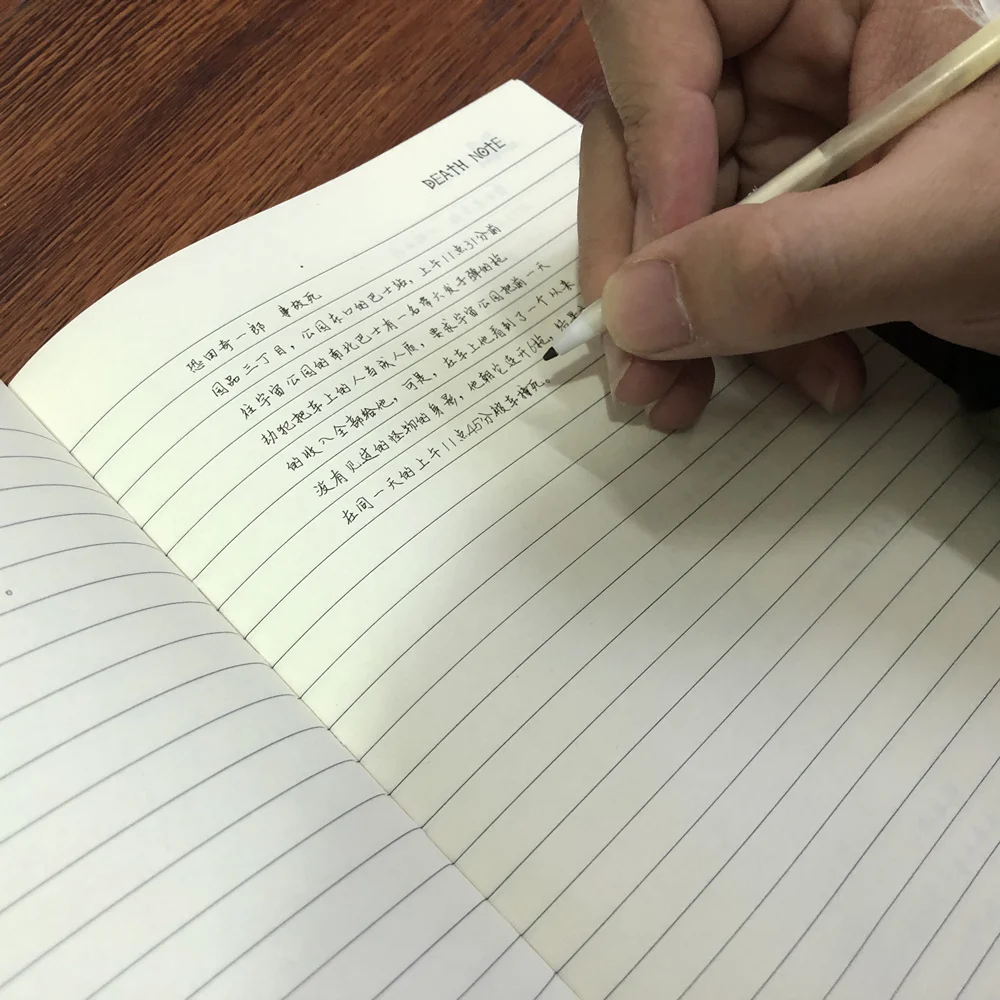 DEATH NOTE
恐田奇一郎 事故死
园品三丁目，公园东口的巴士站，上午11点31分前
往宇宙公园的南北巴士有一名带六发子弹的抢
劫犯把车上的人当成人质，要求宇宙公园把前一天
的收入全部给他，可是，在车上他看到了一个从来
没有见过的怪物的身影，他朝它连开6枪，结果
在同一天的上午11点45分被车撞死。